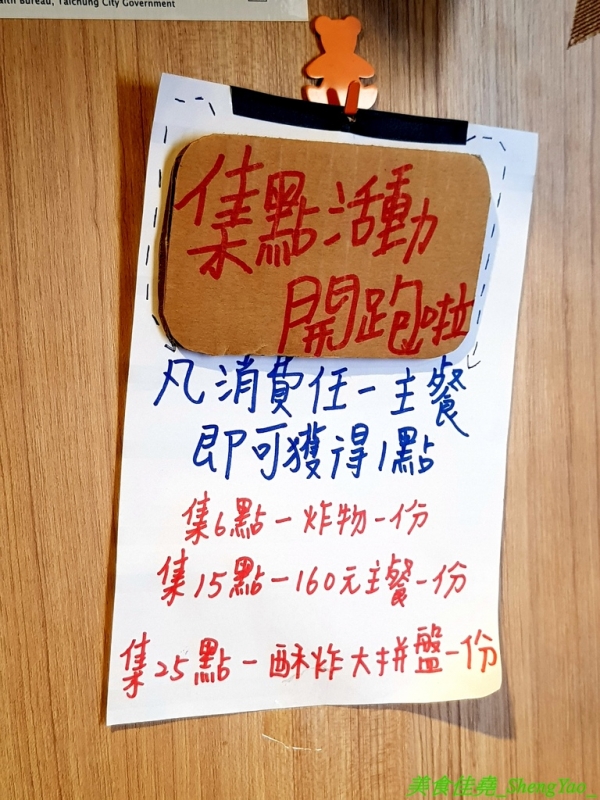 Health Bureau, Taichung City Government
集點活動
開跑啦
凡消費任一主餐
即可獲得1點
集6點-炸物一份
集15點-160元主餐一份
集25點-酥炸大拼盤一份
美食佳堯_ShengYao_